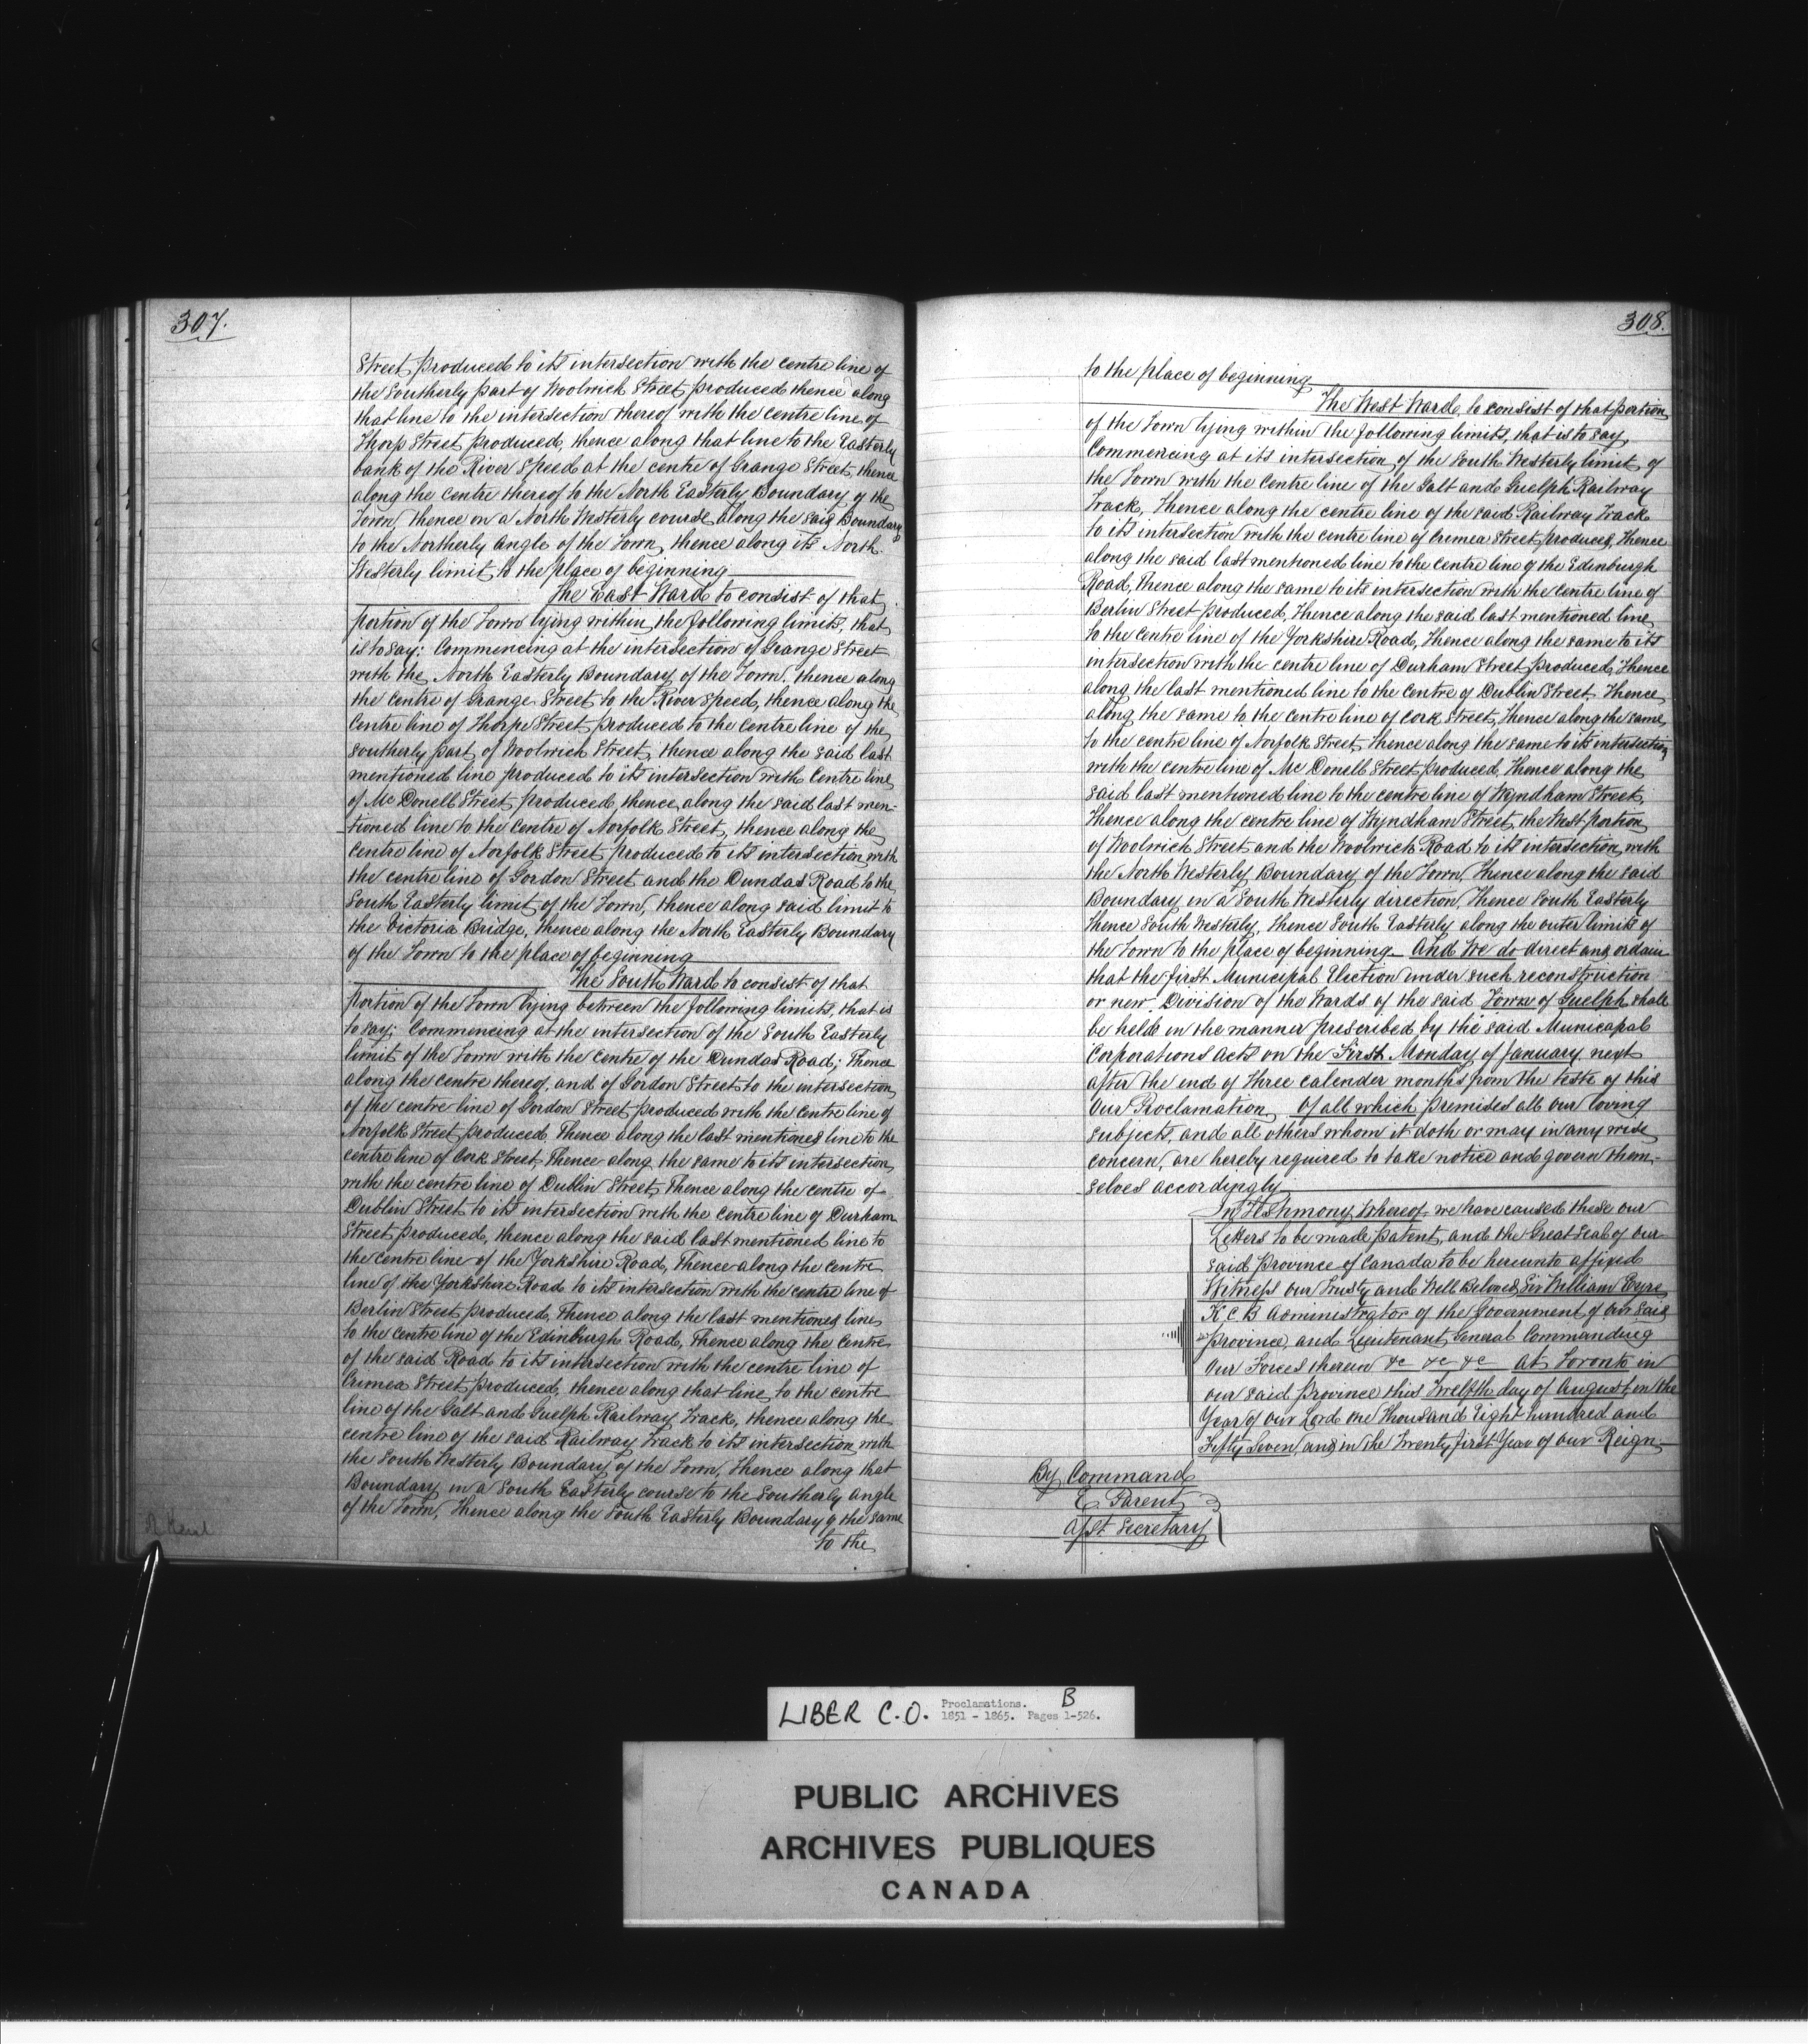 307.
Street produced to its intersection with the centre line of
the Southerly part of Woolwich Street produced thence along
that line to the intersection thereof with the centre line of
Thorp Street produced, thence along that line to the Easterly
bank of the River Speed at the centre of Grange Street, thence
along the centre thereof to the North Easterly Boundary of the
Town, thence on a North Westerly course along the said Boundary
to the Northerly Angle of the Town, thence along its North
Westerly limit to the place of beginning
The East Ward to consist of that
portion of the Town lying within the following limits, that
is to say: Commencing at the intersection of Grange Street
with the North Easterly Boundary of the Town, thence along
the centre of Grange Street to the River Speed, thence along the
Centre line of Thorpe Street produced to the centre line of the
Southerly part of Woolwich Street, thence along the said last
mentioned line produced to its intersection with Centre line
of Mc Donell Street produced, thence along the said last men-
tioned line to the centre of Norfolk Street, thence along the
Centre line of Norfolk Street produced to its intersection with
the centre line of Gordon Street and the Dundas Road to the
South Easterly limit of the Town, thence along said limit to
the Victoria Bridge, thence along the North Easterly Boundary
of the Town to the place of beginning
The South Ward to consist of that
portion of the Town lying between the following limits, that is
to say; Commencing at the intersection of the South Easterly
limit of the Town with the centre of the Dundas Road; Thence
along the centre thereof, and of Gordon Street to the intersection
of the centre line of Gordon Street produced with the centre line of
Norfolk Street produced, Thence along the last mentioned line to the
centre line of Cork Street, Thence along the same to its intersection
with the centre line of Dublin Street, Thence along the centre of
Dublin Street to its intersection with the centre line of Durham
Street produced, thence along the said last mentioned line to
the centre line of the Yorkshire Road, Thence along the centre
line of the Yorkshire Road to its intersection with the centre line of
Berlin Street produced, Thence along the last mentioned line
to the centre line of the Edinburgh Road, Thence along the Centre
of the said Road to its intersection with the centre line of
Crimea Street produced, thence along that line to the centre
line of the Galt and Guelph Railway Track, thence along the
centre line of the said Railway Track to its intersection with
the South Westerly Boundary of the Town, Thence along that
Boundary in a South Easterly course to the Southerly Angle
of the Town, Thence along the South Easterly Boundary of the same
to the
308.
to the place of beginning
The West Ward to consist of that portion
of the Town lying within the following limits, that is to say,
Commencing at its intersection of the South Westerly limit of
the Town with the Centre line of the Galt and Guelph Railway
Track, Thence along the centre line of the said Railway Track
to its intersection with the centre line of Crimea Street produced, Thence
along the said last mentioned line to the centre line of the Edinburgh
Road, Thence along the same to its intersection with the centre line of
Berlin Street produced, Thence along the said last mentioned line
to the centre line of the Yorkshire Road, Thence along the same to its
intersection with the centre line of Durham Street produced, Thence
along the last mentioned line to the centre of Dublin Street, Thence
along the same to the centre line of Cork Street, Thence along the same
to the centre line of Norfolk Street, Thence along the same to its intersection
with the centre line of Mc Donell Street produced, Thence along the
said last mentioned line to the centre line of Wyndham Street,
Thence along the centre line of Wyndham Street, the West portion
of Woolwich Street and the Woolwich Road to its intersection with
the North Westerly Boundary of the Town, Thence along the said
Boundary in a South Westerly direction, Thence South Easterly
thence South Westerly, thence South Easterly along the outer limits of
the Town to the place of beginning And We do direct and ordain
that the first Municipal Election under such reconstruction
or new Division of the Wards of the said Town of Guelph shall
be held in the manner prescribed by the said Municapal
Corporations Acts on the First Monday of January next
after the end of three calender months from the teste of this
Our Proclamation. Of all which premises all our loving
subjects, and all others whom it doth or may in any wise
concern, are hereby required to take notice and govern them-
selves accordingly
In Testimony whereof we have caused these our
Letters to be made patent, and the Great Seal of our
said Province of Canada to be hereunto affixed
Witness our Trusty and Well Beloved Sir William Eyre
K C B Administrator of the Government of our said
Province, and Lieutenant General Commanding
Our Forces therein &c &c &c At Toronto in
our said Province this Twelfth day of August in the
Year of our Lord one Thousand Eight hundred and
Fifty Seven and in the Twenty first Year of our Reign
By Command
E. Parent
Asst. Secretary
LIBER C.O. Proclamations. B
1851 - 1865. Pages 1-526.
PUBLIC ARCHIVES
ARCHIVES PUBLIQUES
CANADA